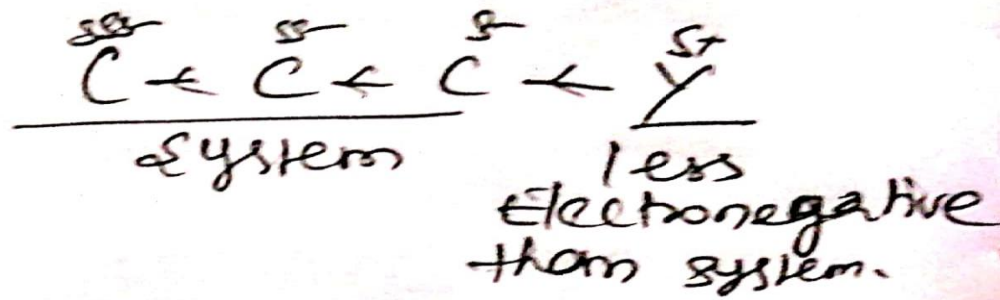 δδδ- δδ- δ- δ+
C ← C ← C ← Y
System less
Electronegative
than system.